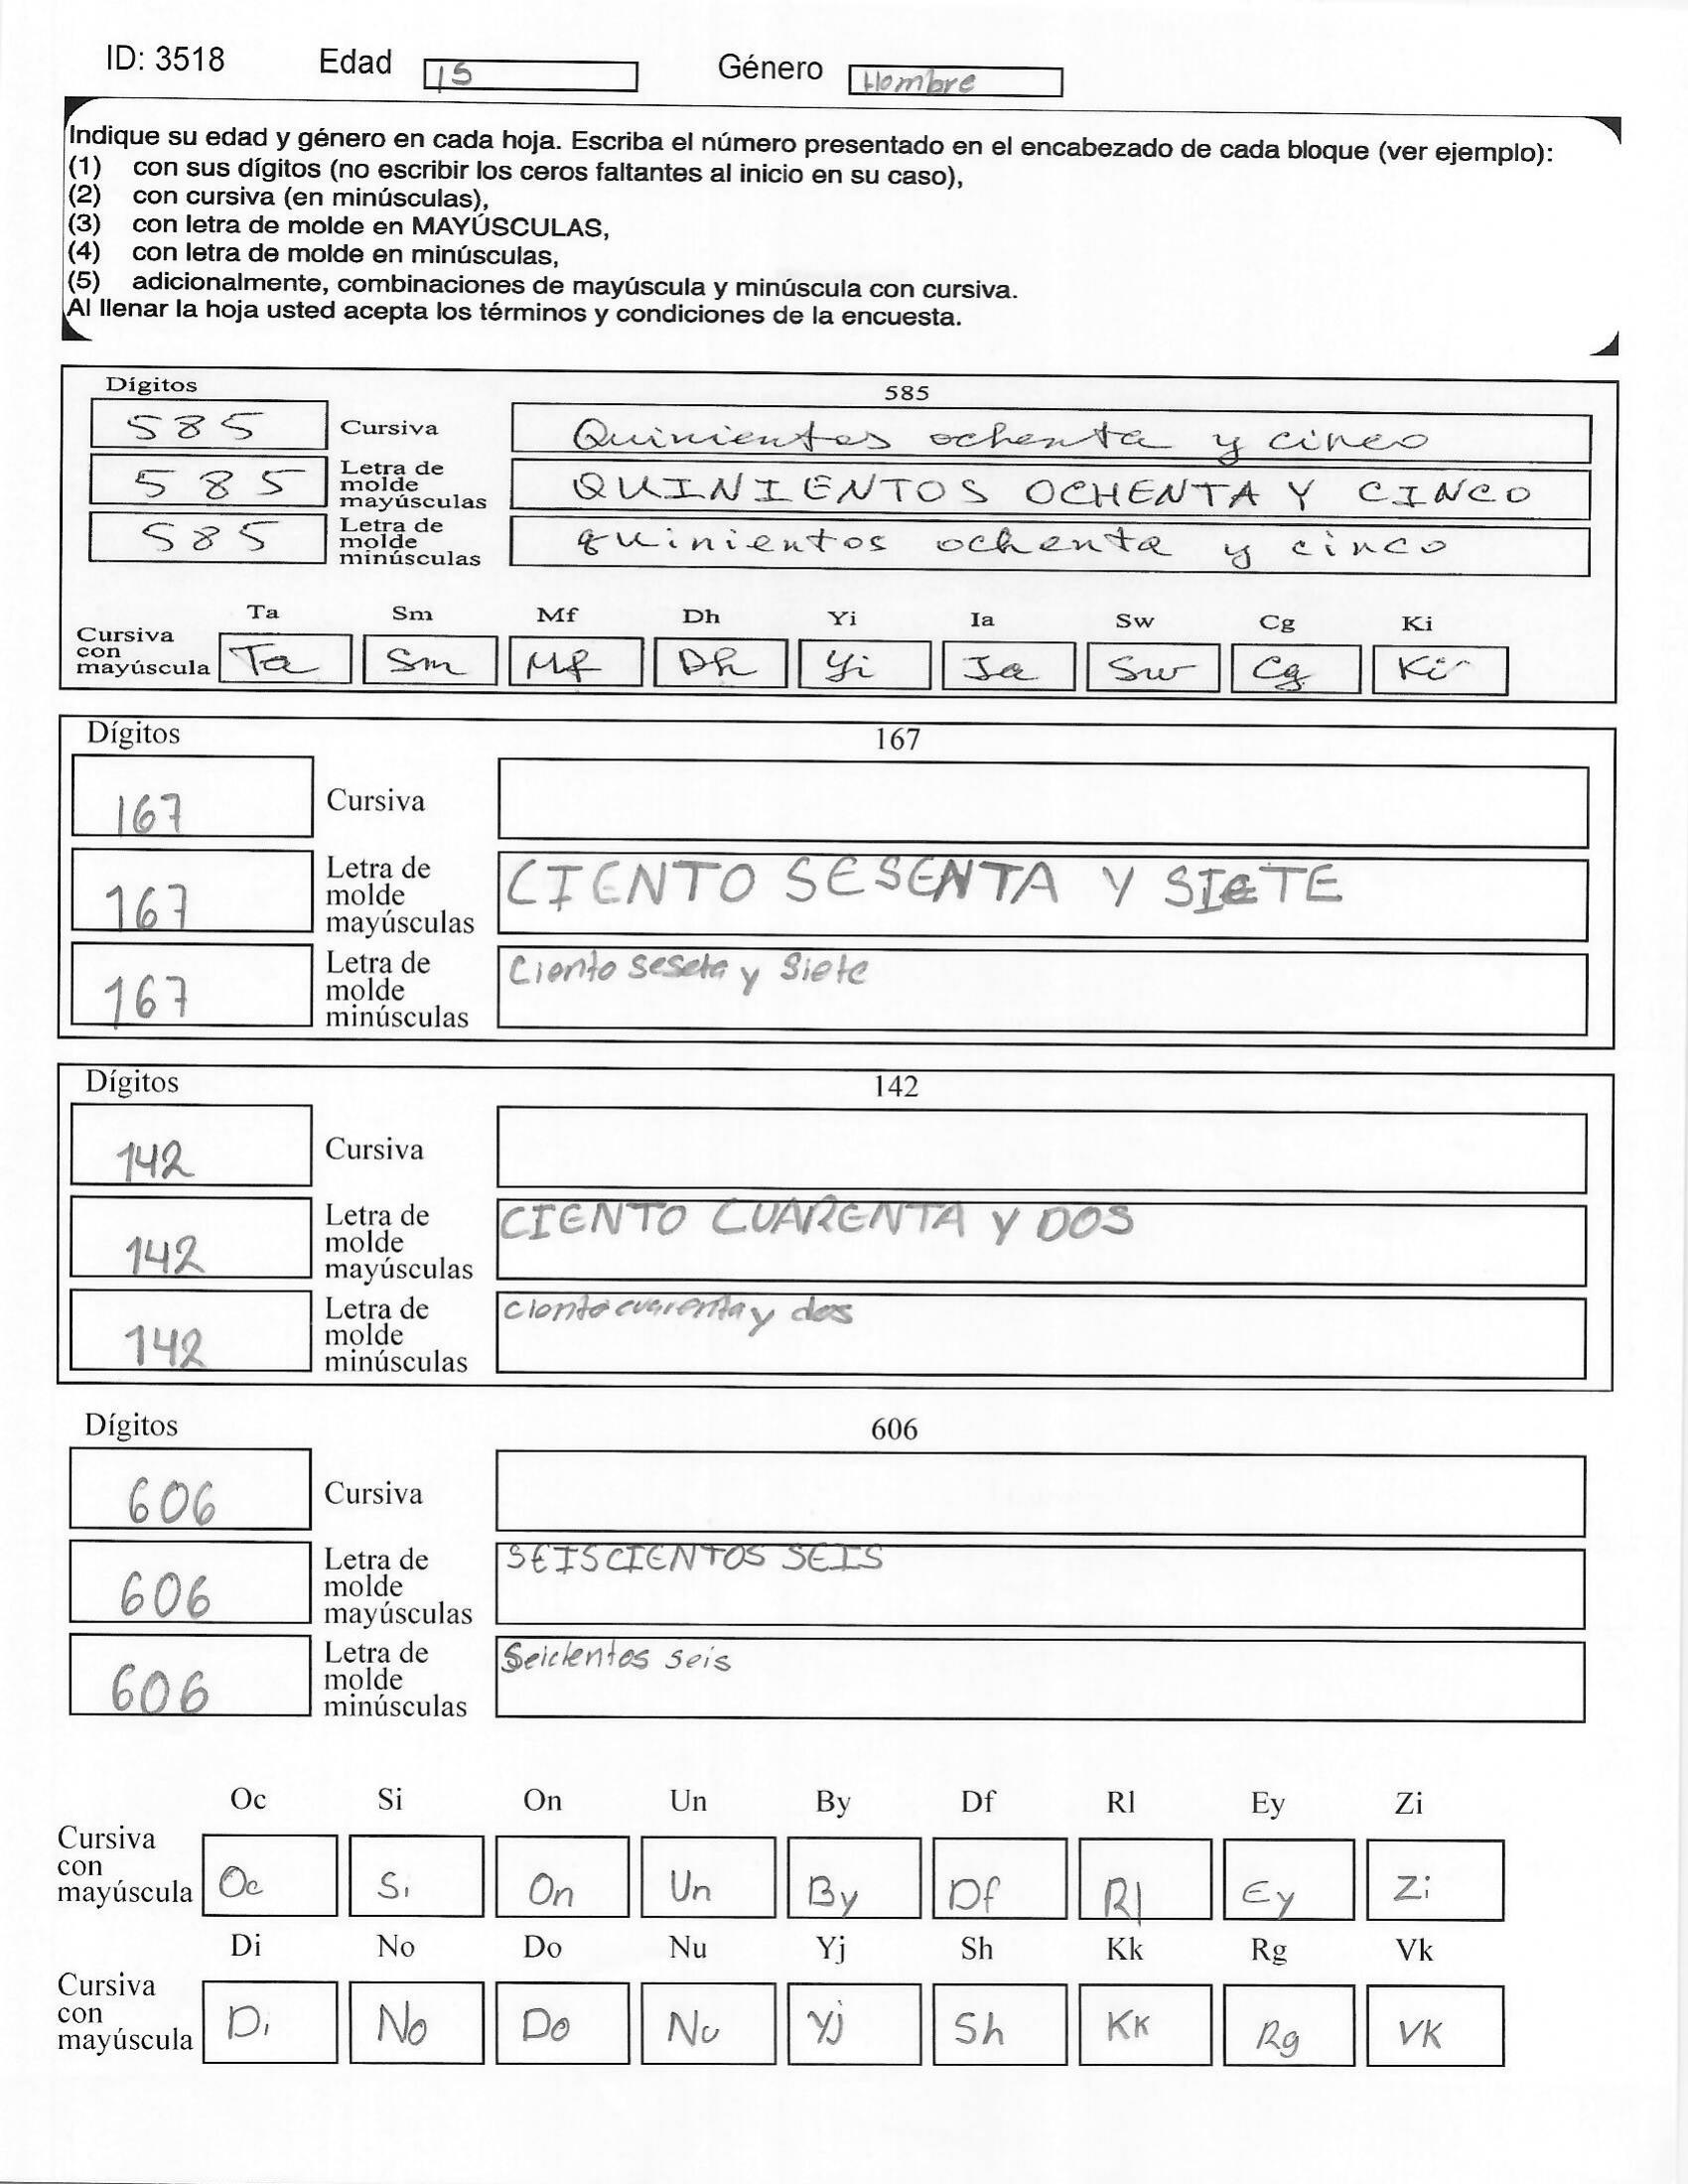 ID: 3518 Edad 15 Género Hombre
Indique su edad y género en cada hoja. Escriba el número presentado en el encabezado de cada bloque (ver ejemplo):
(1) con sus dígitos (no escribir los ceros faltantes al inicio en su caso),
(2) con cursiva (en minúsculas),
(3) con letra de molde en MAYÚSCULAS,
(4) con letra de molde en minúsculas,
(5) adicionalmente, combinaciones de mayúscula y minúscula con cursiva.
Al llenar la hoja usted acepta los términos y condiciones de la encuesta.
Dígitos 585
585 Cursiva Quinientos ochenta y cinco
585 Letra de molde mayúsculas QUINIENTOS OCHENTA Y CINCO
585 Letra de molde minúsculas quinientos ochenta y cinco
Ta Sm Mf Dh Yi Ia Sw Cg Ki
Cursiva con mayúscula Ta Sm Mf Dh Yi Ia Sw Cg Ki
Dígitos 167
167 Cursiva
167 Letra de molde mayúsculas CIENTO SESENTA Y SIeTE
167 Letra de molde minúsculas Ciento seseta y Siete
Dígitos 142
142 Cursiva
142 Letra de molde mayúsculas CIENTO CUARENTA Y DOS
142 Letra de molde minúsculas ciento cuarenta y dos
Dígitos 606
606 Cursiva
606 Letra de molde mayúsculas SEISCIENTOS SEIS
606 Letra de molde minúsculas Seicientos seis
Oc Si On Un By Df Rl Ey Zi
Cursiva con mayúscula Oc Si On Un By Df Rl Ey Zi
Di No Do Nu Yj Sh Kk Rg Vk
Cursiva con mayúscula Di No Do Nu Yj Sh KK Rg VK